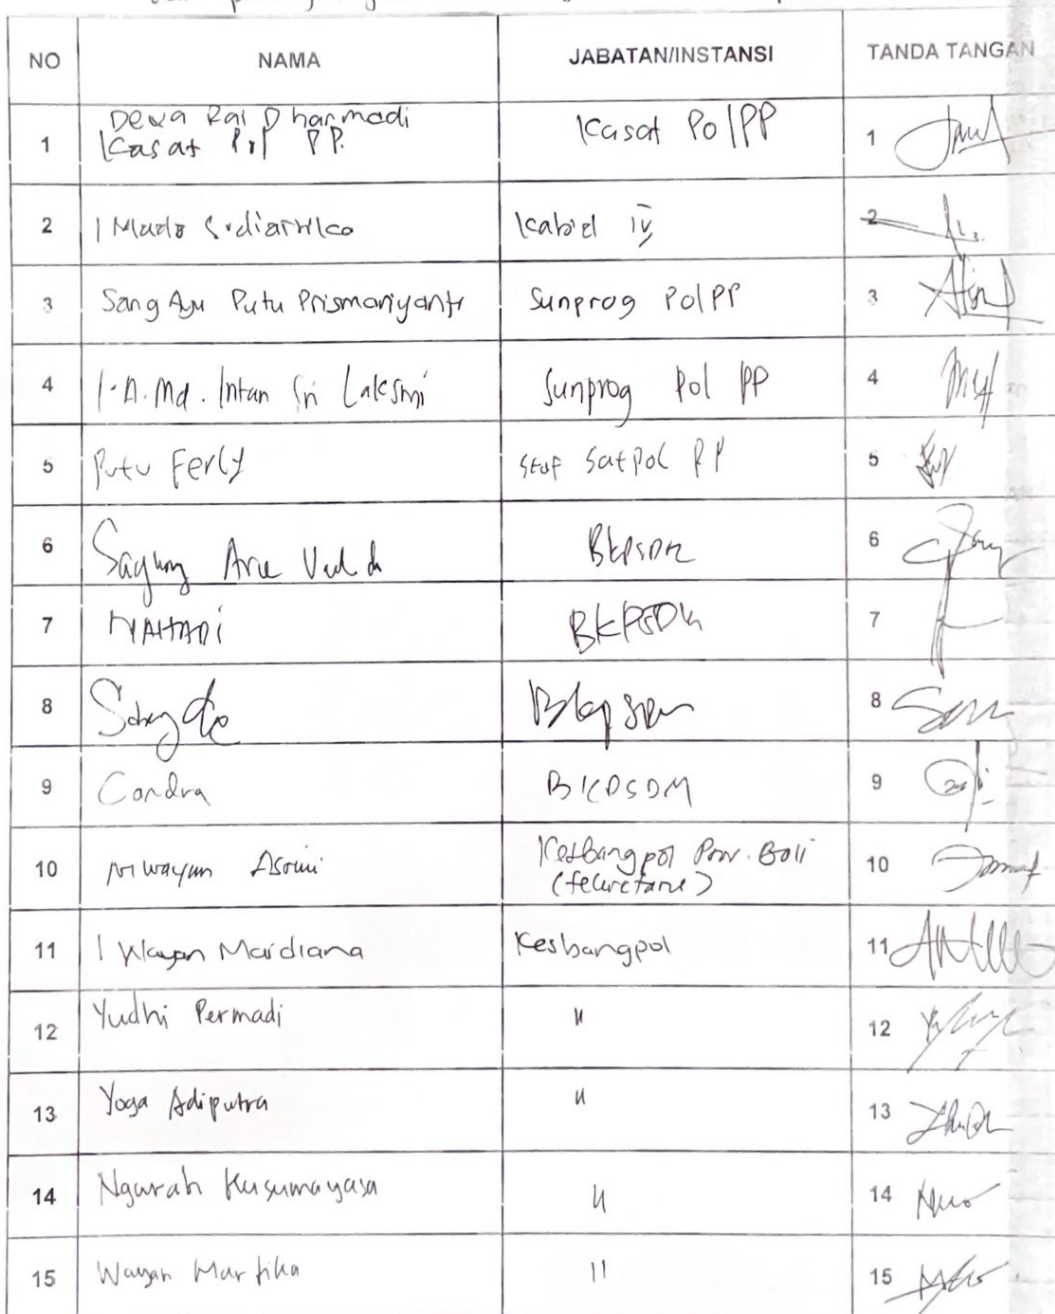 NO NAMA JABATAN/INSTANSI TANDA TANGAN
Dewa Rai Dharmadi
1 Kasat Pol PP. Kasat Pol PP 1
2 I Made Kabid IV 2
3 Sang Ayu Putu Prismariyanti Sunprog Pol PP 3
4 I.A.Md. Intan Sri Laksmi Sunprog Pol PP 4
5 Putu Ferly Staf Satpol PP 5
6 Sagung Arie BKPSDM 6
7 BKPSDM 7
8 BKPSDM 8
9 Candra BKPSDM 9
10 Ni Wayan Asrini Kesbangpol Prov. Bali 10
(Sekretaris)
11 I Wayan Mardiana Kesbangpol 11
12 Yudhi Permadi " 12
13 Yoga Adiputra " 13
14 Ngurah Kusumayasa " 14
15 Wayan Martika " 15